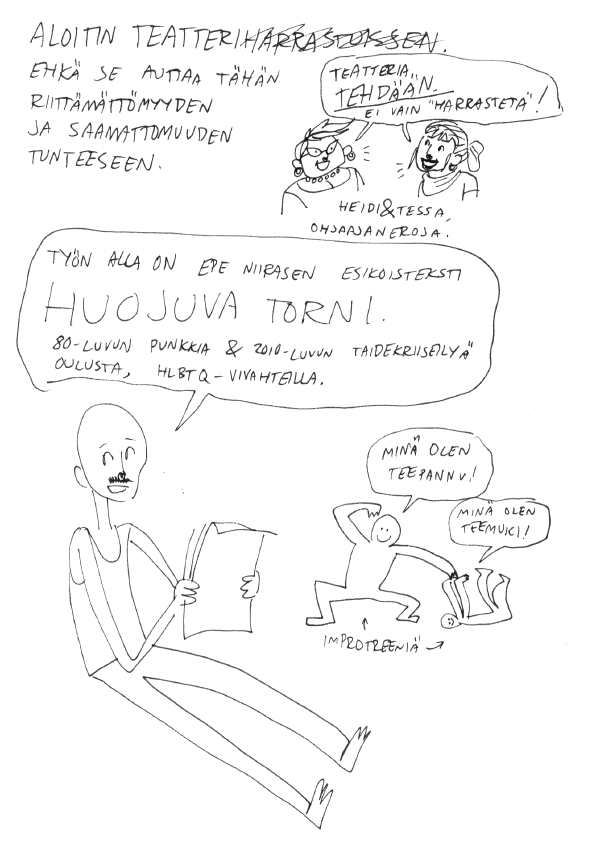 ALOITIN TEATTERIHARRASTUKSEN.
EHKÄ SE AUTTAA TÄHÄN
RIITTÄMÄTTÖMYYDEN
JA SAAMATTOMUUDEN
TUNTEESEEN.
TEATTERIA
TEHDÄÄN.
EI VAIN "HARRASTETA"!
HEIDI&TESSA,
OHJAAJANEROJA.
TYÖN ALLA ON EPE NIIRASEN ESIKOISTEKSTI
HUOJUVA TORNI.
80-LUVUN PUNKKIA & 2010-LUVUN TAIDEKRIISEILYÄ
OULUSTA, HLBTQ-VIVAHTEILLA.
MINÄ OLEN
TEEPANNU!
MINÄ OLEN
TEEMUKI!
↑
IMPROTREENIÄ →